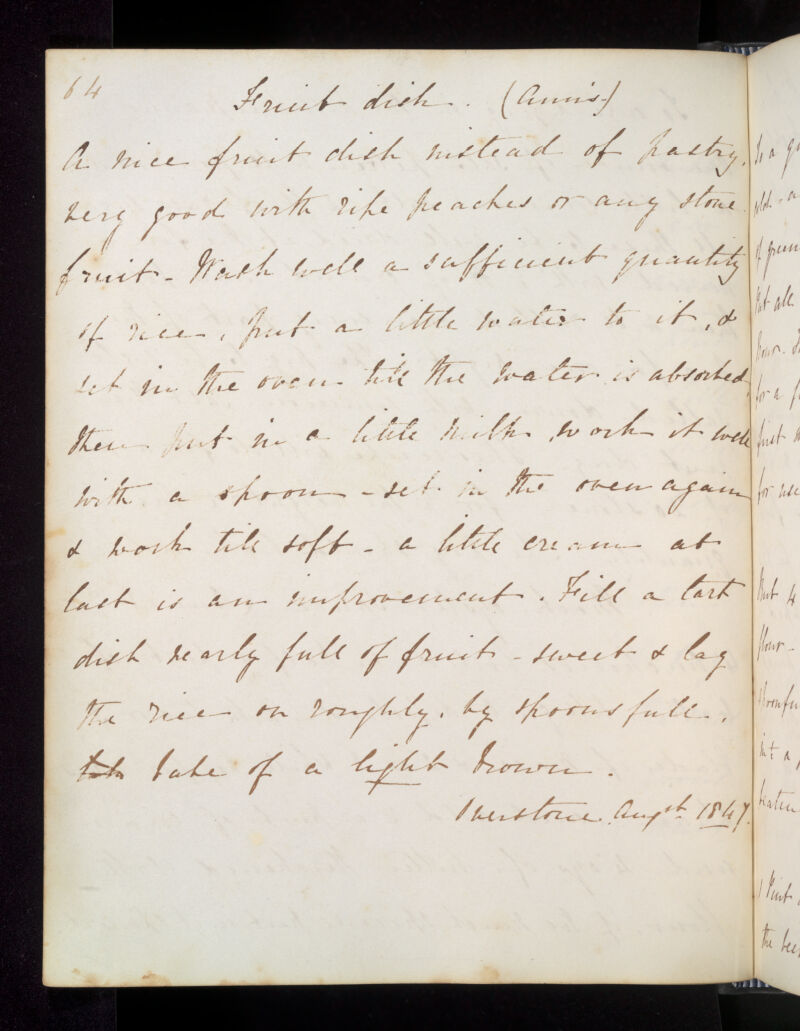 64
Fruit dish. (Anns)
A nice fruit dish instead of pastry,
very good with ripe peaches or any stone
fruit - Wash well a sufficient quantity
of rice, put a little water to it, &
set in the oven till the water is absorbed,
then put in a little milk, work it well
with a spoon - set in the oven again
& work till soft - a little cream at
last is an improvement. Fill a tart
dish nearly full of fruit - sweet & lay
the rice on roughly, by spoonsfull.
bake of a light brown.
Overstone. Augst 1847.